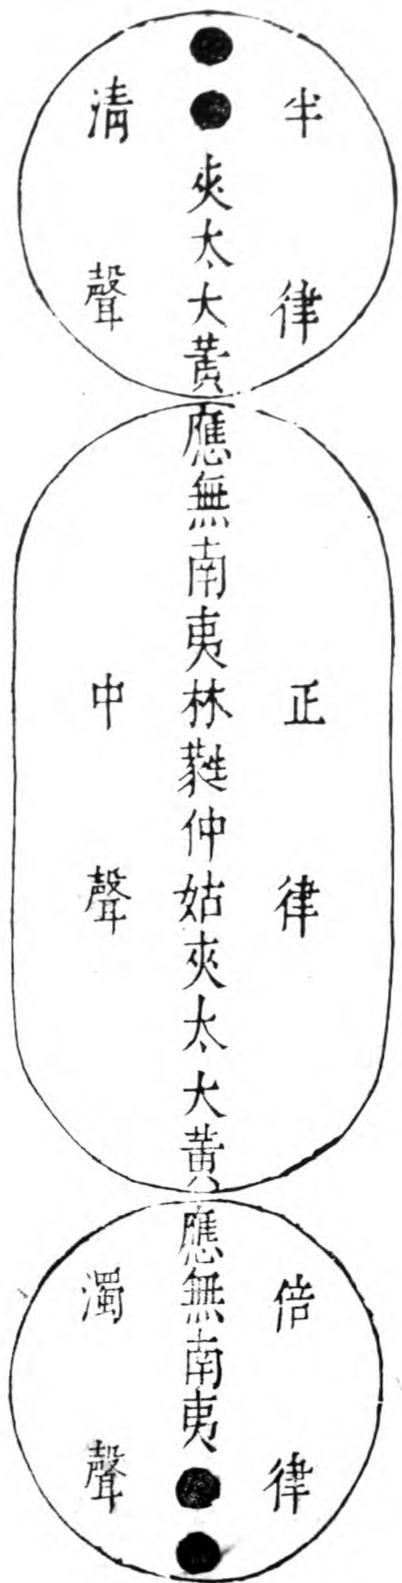 半律
夾太大黃
清聲
正律
應無南夷林蕤仲姑夾太大黃
中聲
倍律
應無南夷
濁聲